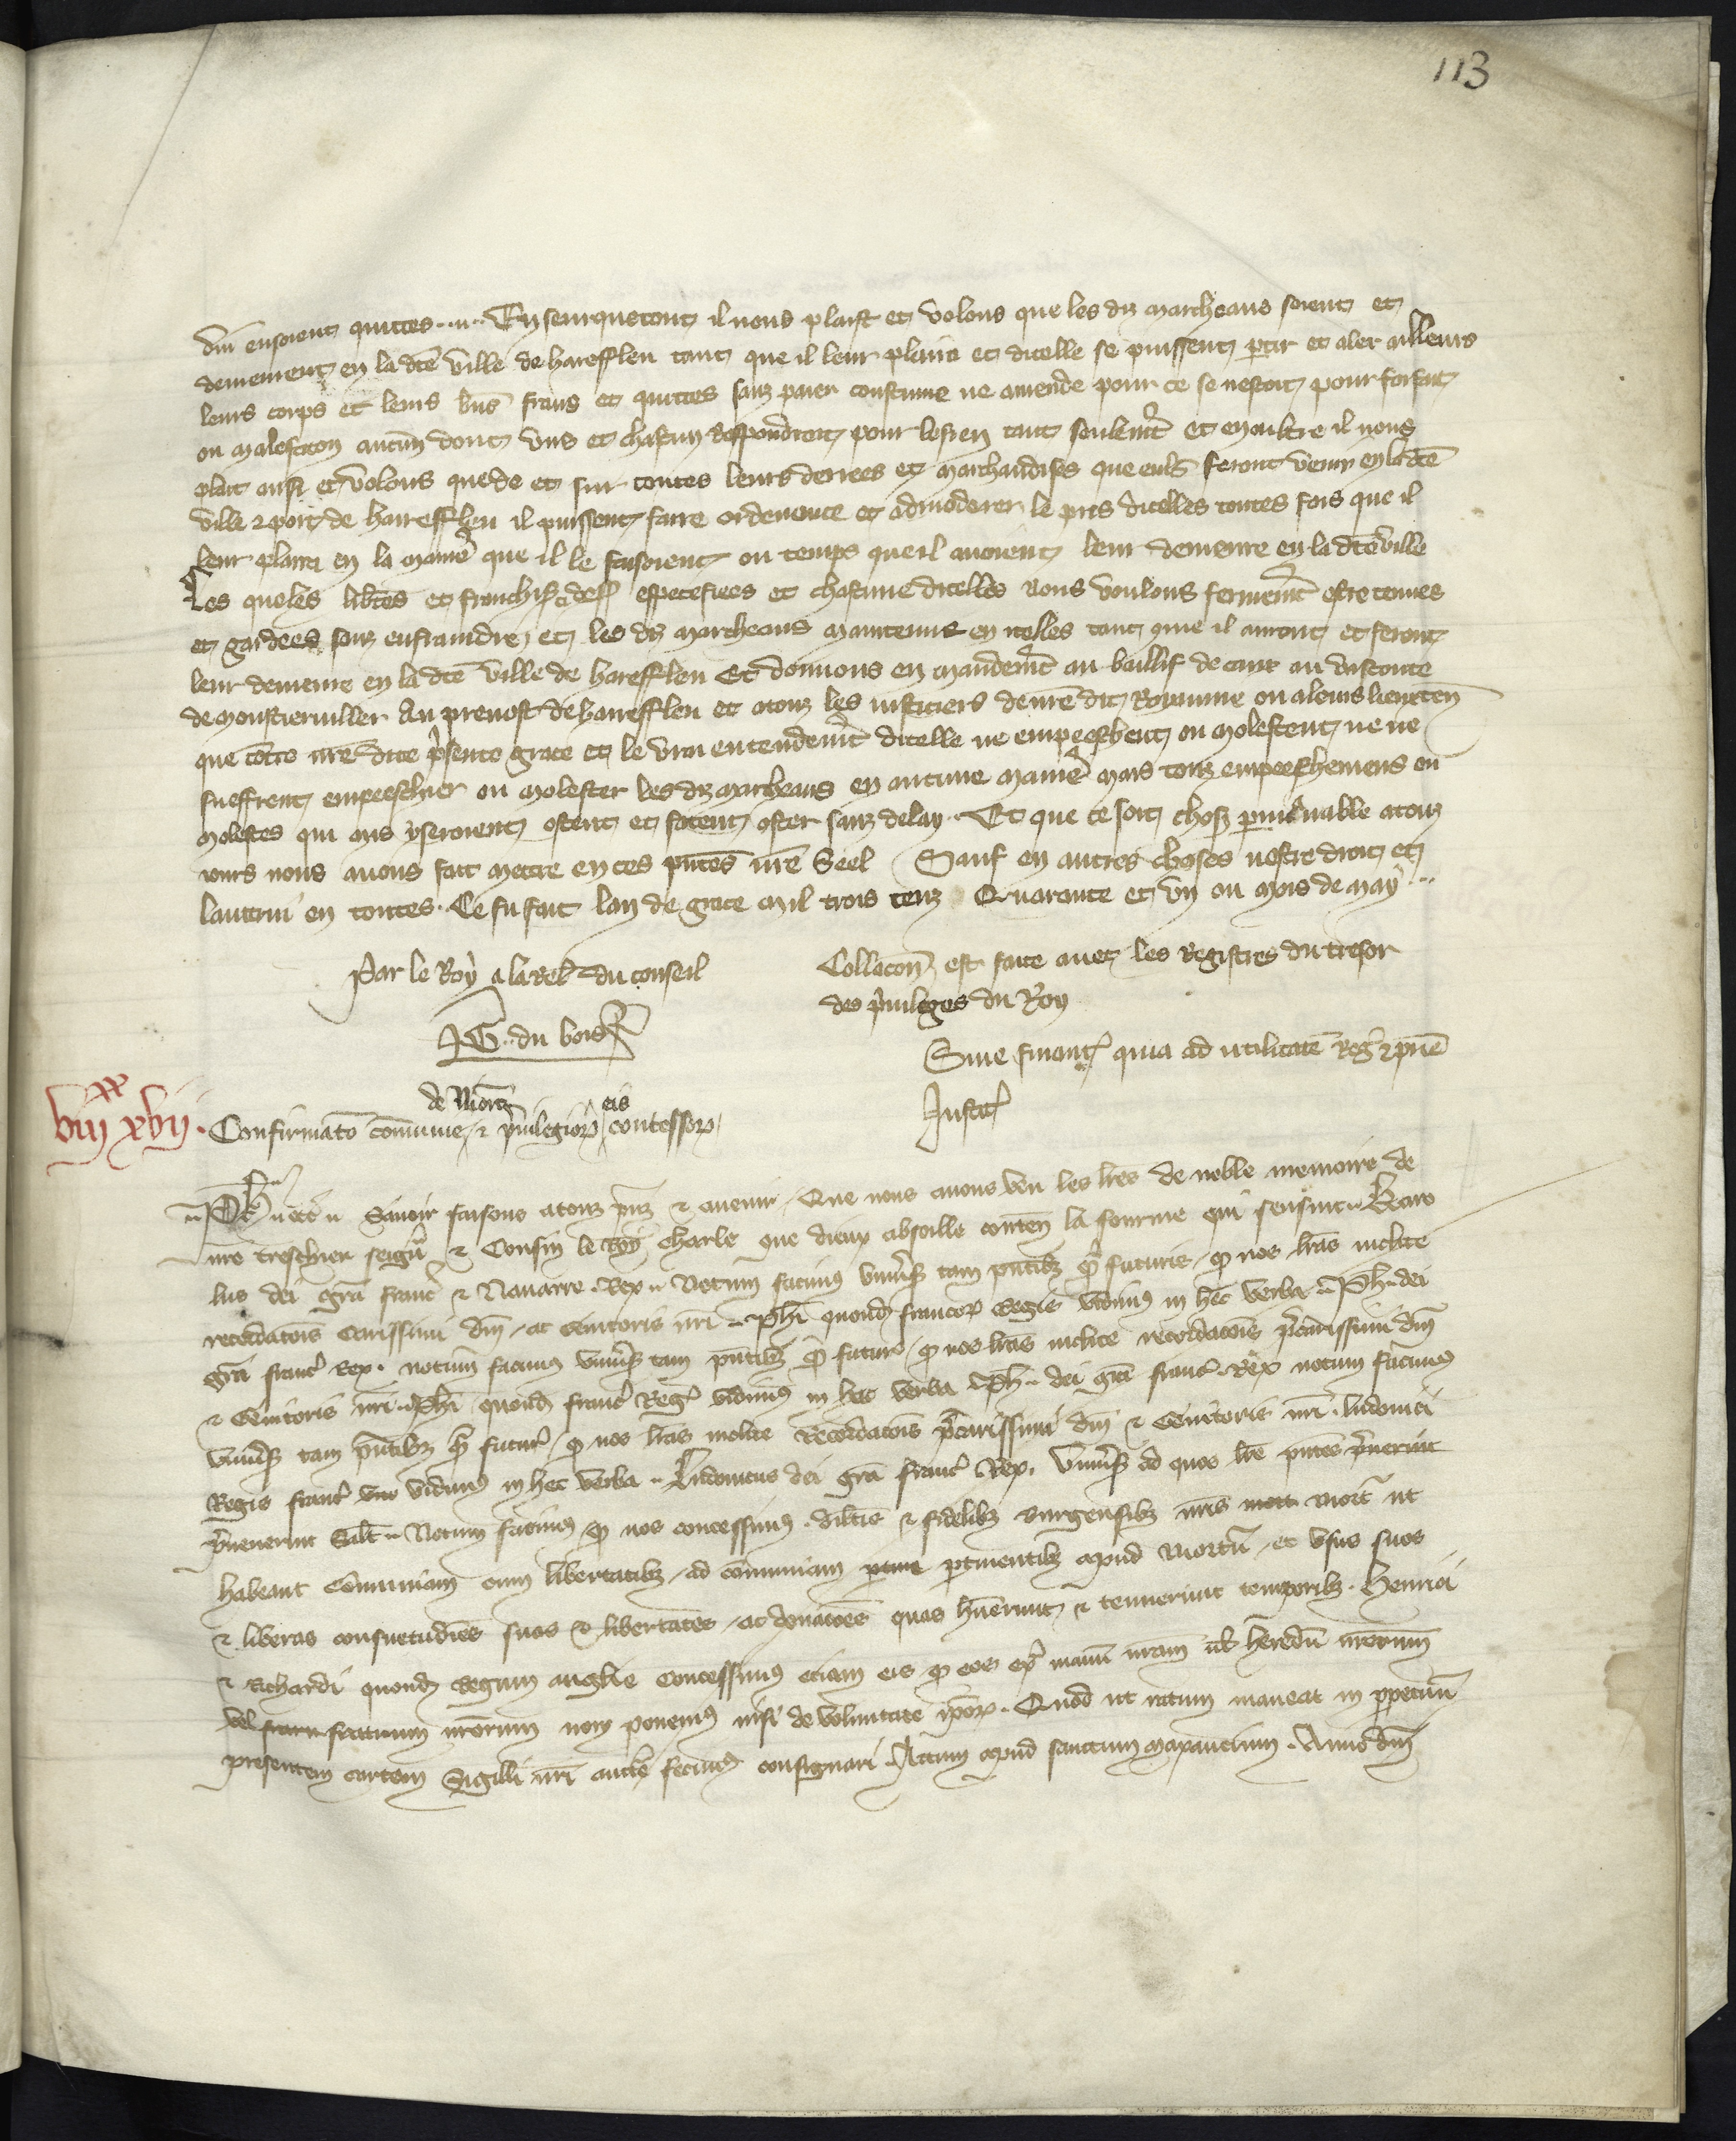 113
dui ensoient quittes. Enseurquetout il nous plaist et volons que les diz marcheans soient et
demeurent en la dcē ville de harefflen tant que il leur plaira et dicelle se puissent ptir et aler ailleurs
leurs corps et leurs biēs frans et quittes sanz paier coustume ne amende pour ce se nestoit pour forfait
ou malefacon aucun dont uns et chascun respondroit pour lesien tant seulemēt et en oultre il nous
plait aussi et volons que de et sur toutes leurs denrees et marchandises que eulx feront venir en la dcē
ville et port de harefflen il puissent faire ordenance et admoderer le pris dicelles toutes fois que il
leur plaira en la manieʳ que il le faisoient ou temps que il auoient leur demeure en la dcē ville
Les queles libtes et franchises dess especefiees et chascune dicelles nous voulons fermemēt estre tenues
et gardees sanz enfraindre et les diz marcheans maintenus en icelles tant que il auront et feront
leur demeure en la dcē ville de harefflen Et donnons en mandemēt au baillif de caux au visconte
de monstieruiller Au preuost de harefflen et atouz les iusticiers de nrē dit Royaume ou aleurs lieuxten̄
que cōtre nrē dite p̄sente grace et le vrai entendemēt dicelle ne empeeschent ou molestent ne ne
sueffrent empeeschier ou molester les diz marcheans en aucune manieʳ mais touz empeeschemens ou
molestes qui mis y seroient ostent et facent oster sanz delay. Et que ce soit chose pmenable atouz
iours nous auons fait mettre en ces pn̄tes nrē Seel Sauf en autres choses nostre droit et
lautrui en toutes. Ce fu fait lan de grace mil trois cenz Quarante et vn ou mois de may
Par le Roy a la rel du conseil
Collacon est faite auec les Registres du tresor
des priuileges du Roy
JG. du bois
Sine financ quia ad utilitatē Reḡ & pn̄e
Justic
viijxx xvij.
de Niorz eis
Confirmatō cōmunie & p̄uilegior concessor
Ph etc Sauoir faisons atouz pn̄z & auenir Que nous auons veu les lr̄es de noble memoire de
nrē treschier seign̄ & Cousin le Roy Charle que dieux absoille conten̄ la fourme qui sensuit Karo
lus dei grā franc & Nauarre Rex Notum facimus uniuers tam pn̄tibz q̄ futuris q̄ nos lrās inclite
recordacōis Carissimi dn̄i ac Genitoris nrī Phī quond francor Regis vidimus in hec verba Ph dei
grā franc Rex. notum facimus uniuers tam pn̄tibz q̄ futur q̄ nos lrās inclite recordacōis p̄carissimi dn̄i
& Genitoris nrī Phī quond franc Reg vidimus in hec verba Ph dei grā franc Rex notum facimus
uniuers tam pn̄tibz q̄ futur q̄ nos lrās inclite Recordacōis p̄carissimi dn̄i & Genitoris nrī ludouici
Regis franc vidimus in hec verba Ludouicus dei grā franc Rex. Uniuers ad quos lrē pn̄tes p̄uenerint
p̄uenerint Salt Notum facimus q̄ nos concessimus dilcis & fidelibz burgensibz nrīs Niort ut
habeant Cōmuniam cum libertatibz ad cōmuniam ptinentibz apud Niortū et usus suos
& liberas consuetudīes suas & libertates ac donacōes quas hūerunt & tenuerunt temporibz Henrici
& Richardi quond Regum anglie Concessimus etiam eis q̄ eos ext manū nrām uł heredū nrōrum
vel fratrum nrōrum non ponemus nisi de voluntate ipor. Quod ut ratum maneat in ppetuū
presentem cartam Sigilli nrī auctē fecimus consignari. Actum apud sanctum maxantium. Anno dn̄i